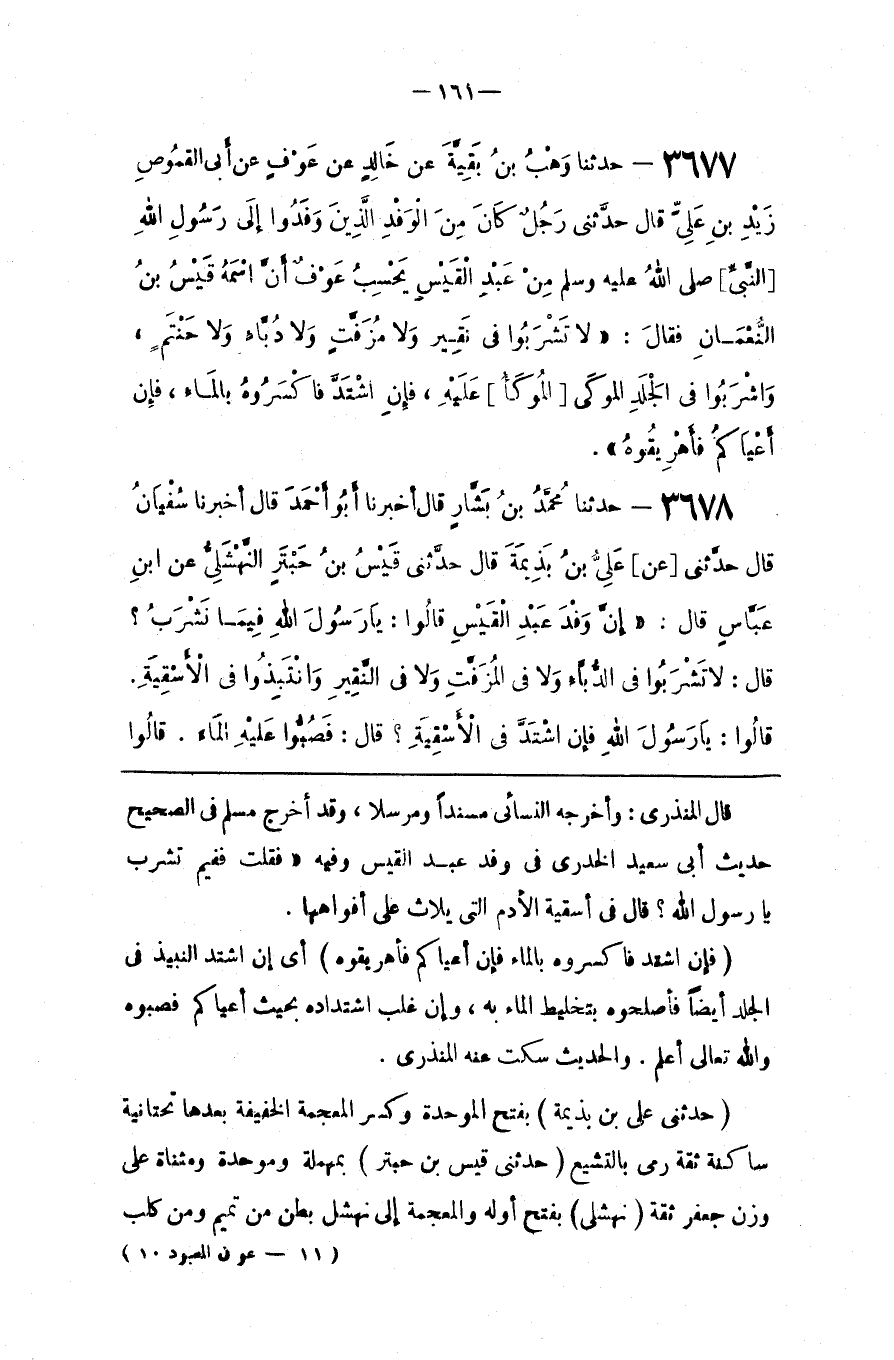 — ١٦١ —
٣٦٧٧ — حدثنا وَهْبُ بنُ بَقِيَّةَ عن خَالِدٍ عن عَوْفٍ عن أَبى القَمُوصِ
زَيْدِ بنِ عَلِيٍّ قال حدَّثنى رَجُلٌ كَانَ مِنَ الْوَفْدِ الَّذِينَ وَفَدُوا إِلَى رَسُولِ اللهِ
[النَّبىِّ] صلى اللهُ عليه وسلم مِنْ عَبْدِ الْقَيْسِ يَحْسِبُ عَوْفٌ أَنَّ اسْمَهُ قَيْسُ بنُ
النُّعْمَـانِ فقالَ : « لا تَشْرَبُوا فى نَقِـيرٍ وَلا مُزَفَّتٍ وَلا دُبَّاءٍ وَلا حَنْتَمٍ ،
وَاشْرَبُوا فى الْجِلْدِ الموكَى [ الْمُوكَأُ ] عَلَيْهِ ، فإِنِ اشْتَدَّ فاكْسَرُوهُ بالمَـاءِ ، فإِن
أَعْيَاكُمْ فأَهْرِيقُوهُ » .
٣٦٧٨ — حدثنا مُحمَّدُ بنُ بَشَّارٍ قال أخبرنا أَبُو أَحْمَدَ قال أخبرنا سُفْيَانُ
قال حدَّثنى [عن] عَلِيُّ بنُ بَذِيمَةَ قال حدَّثنى قَيْسُ بنُ حَبْتَرٍ النَّهْشَلِيُّ عن ابنِ
عَبَّاسٍ قال : « إِنَّ وَفْدَ عَبْدِ الْقَيْسِ قالُوا : يَارَسُولَ اللهِ فِيمَـا نَشْرَبُ ؟
قال : لاتَشْرَبُوا فى الدُّبَّاءِ وَلا فى المُزَفَّتِ وَلا فى النَّقِيرِ وَانْتَبِذُوا فى الْأَسْقِيَةِ.
قالُوا : يَارَسُولَ اللهِ فإِن اشْتَدَّ فى الْأَسْقِيَةِ ؟ قال : فَصُبُّوا عَلَيْهِ المَاء . قالُوا
قال المنذرى : وأخرجه النسائى مسنداً ومرسلا ، وقد أخرج مسلم فى الصحيح
حديث أبى سعيد الخدرى فى وفد عبـد القيس وفيه « فقلت ففيم تشرب
يا رسول الله ؟ قال فى أسقية الأدم التى يلاث على أفواهها .
( فإن اشتد فاكسروه بالماء فإن أعياكم فأهريقوه ) أى إن اشتد النبيذ فى
الجلد أيضاً فأصلحوه بتخليط الماء به ، وإن غلب اشتداده بحيث أعياكم فصبوه
والله تعالى أعلم . والحديث سكت عنه المنذرى .
( حدثنى على بن بذيمة ) بفتح الموحدة وكسر المعجمة الخفيفة بعدها تحتانية
ساكنة ثقة رمى بالتشيع ( حدثنى قيس بن حبتر ) بمهملة وموحدة ومثناة على
وزن جعفر ثقة ( نهشلى ) بفتح أوله والمعجمة إلى نهشل بطن من تميم ومن كلب
( ١١ — عون المعبود ١٠ )